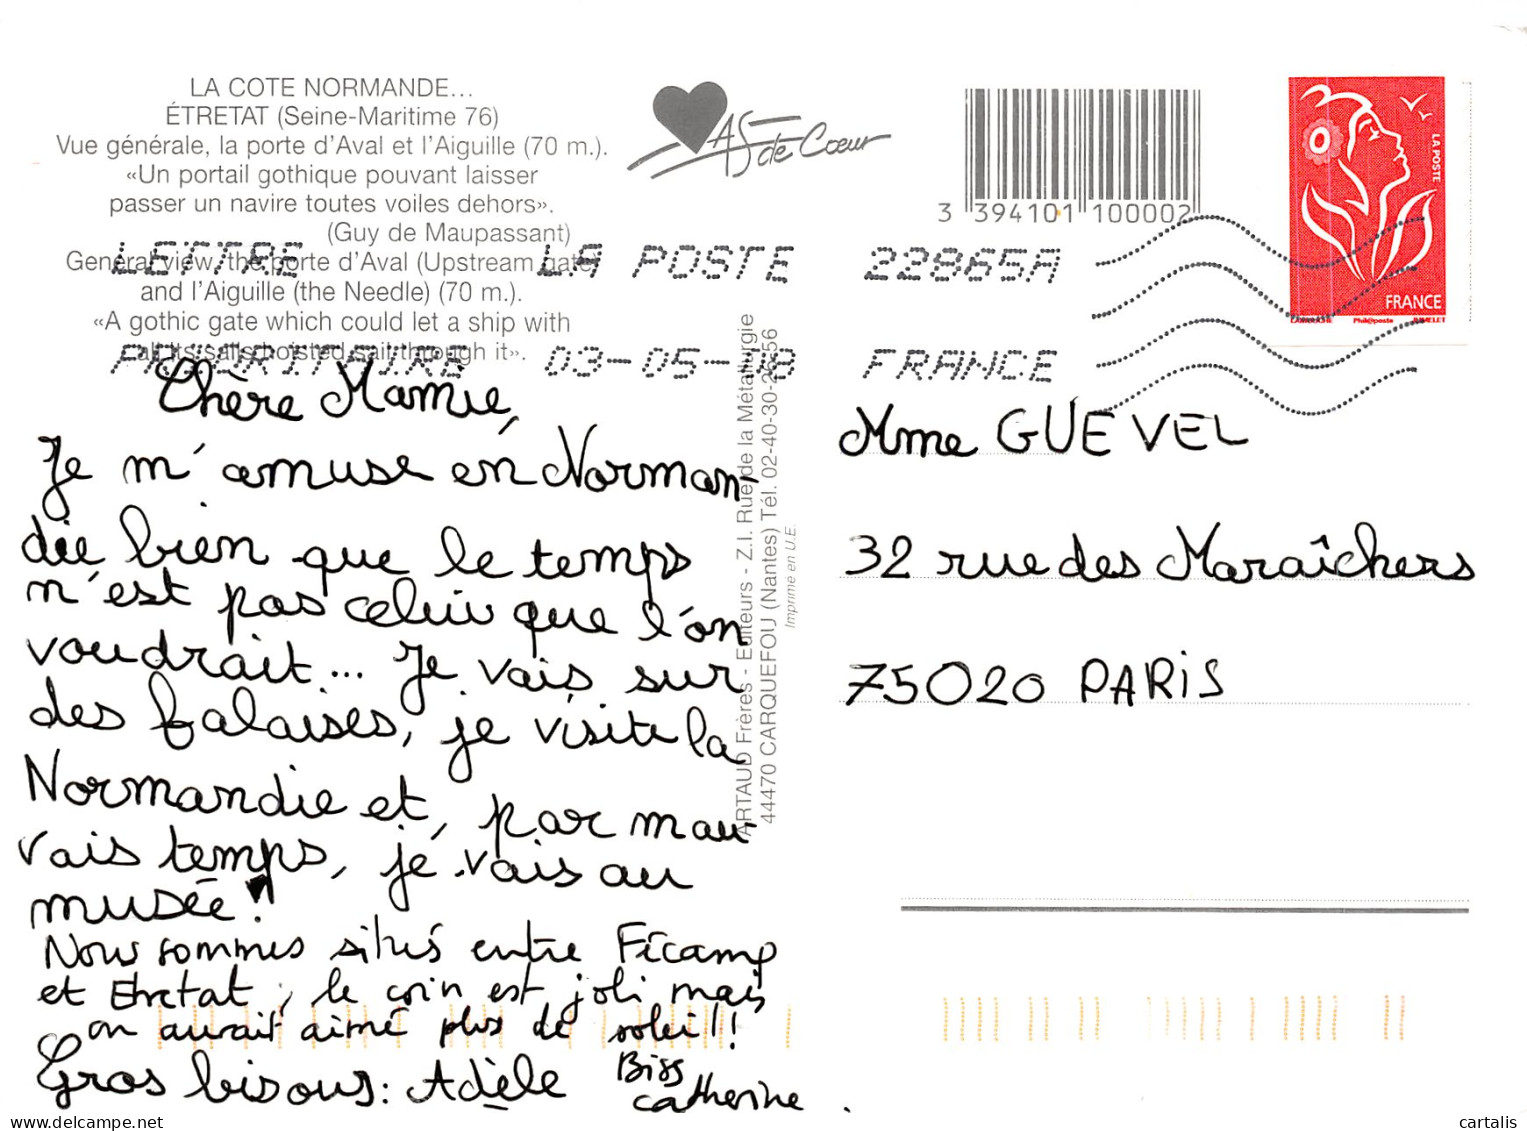 LA COTE NORMANDE...
ÉTRETAT (Seine-Maritime 76)
Vue générale, la porte d'Aval et l'Aiguille (70 m.).
«Un portail gothique pouvant laisser
passer un navire toutes voiles dehors».
(Guy de Maupassant)
General view, the porte d'Aval (Upstream gate)
and l'Aiguille (the Needle) (70 m.).
«A gothic gate which could let a ship with
all its sails hoisted sail through it».
AS de Cœur
3 394101 100002
LA POSTE
FRANCE
Phil@poste
LETTRE LA POSTE 22865A
PRIORITAIRE 03-05-08 FRANCE
Chère Mamie,
Je m'amuse en Norman-
die bien que le temps
n'est pas celui que l'on
voudrait... Je vais sur
des falaises, je visite la
Normandie et, par mau-
vais temps, je vais au
musée!
Nous sommes situés entre Fécamp
et Etretat, le coin est joli mais
on aurait aimé plus de soleil!!
Gros bisous: Adèle
Biss
Catherine.
ARTAUD Frères - Editeurs - Z.I. Rue de la Métallurgie
44470 CARQUEFOU (Nantes) Tél. 02-40-30-26-56
Imprimé en U.E.
Mme GUEVEL
32 rue des Maraîchers
75020 PARIS
cartalis